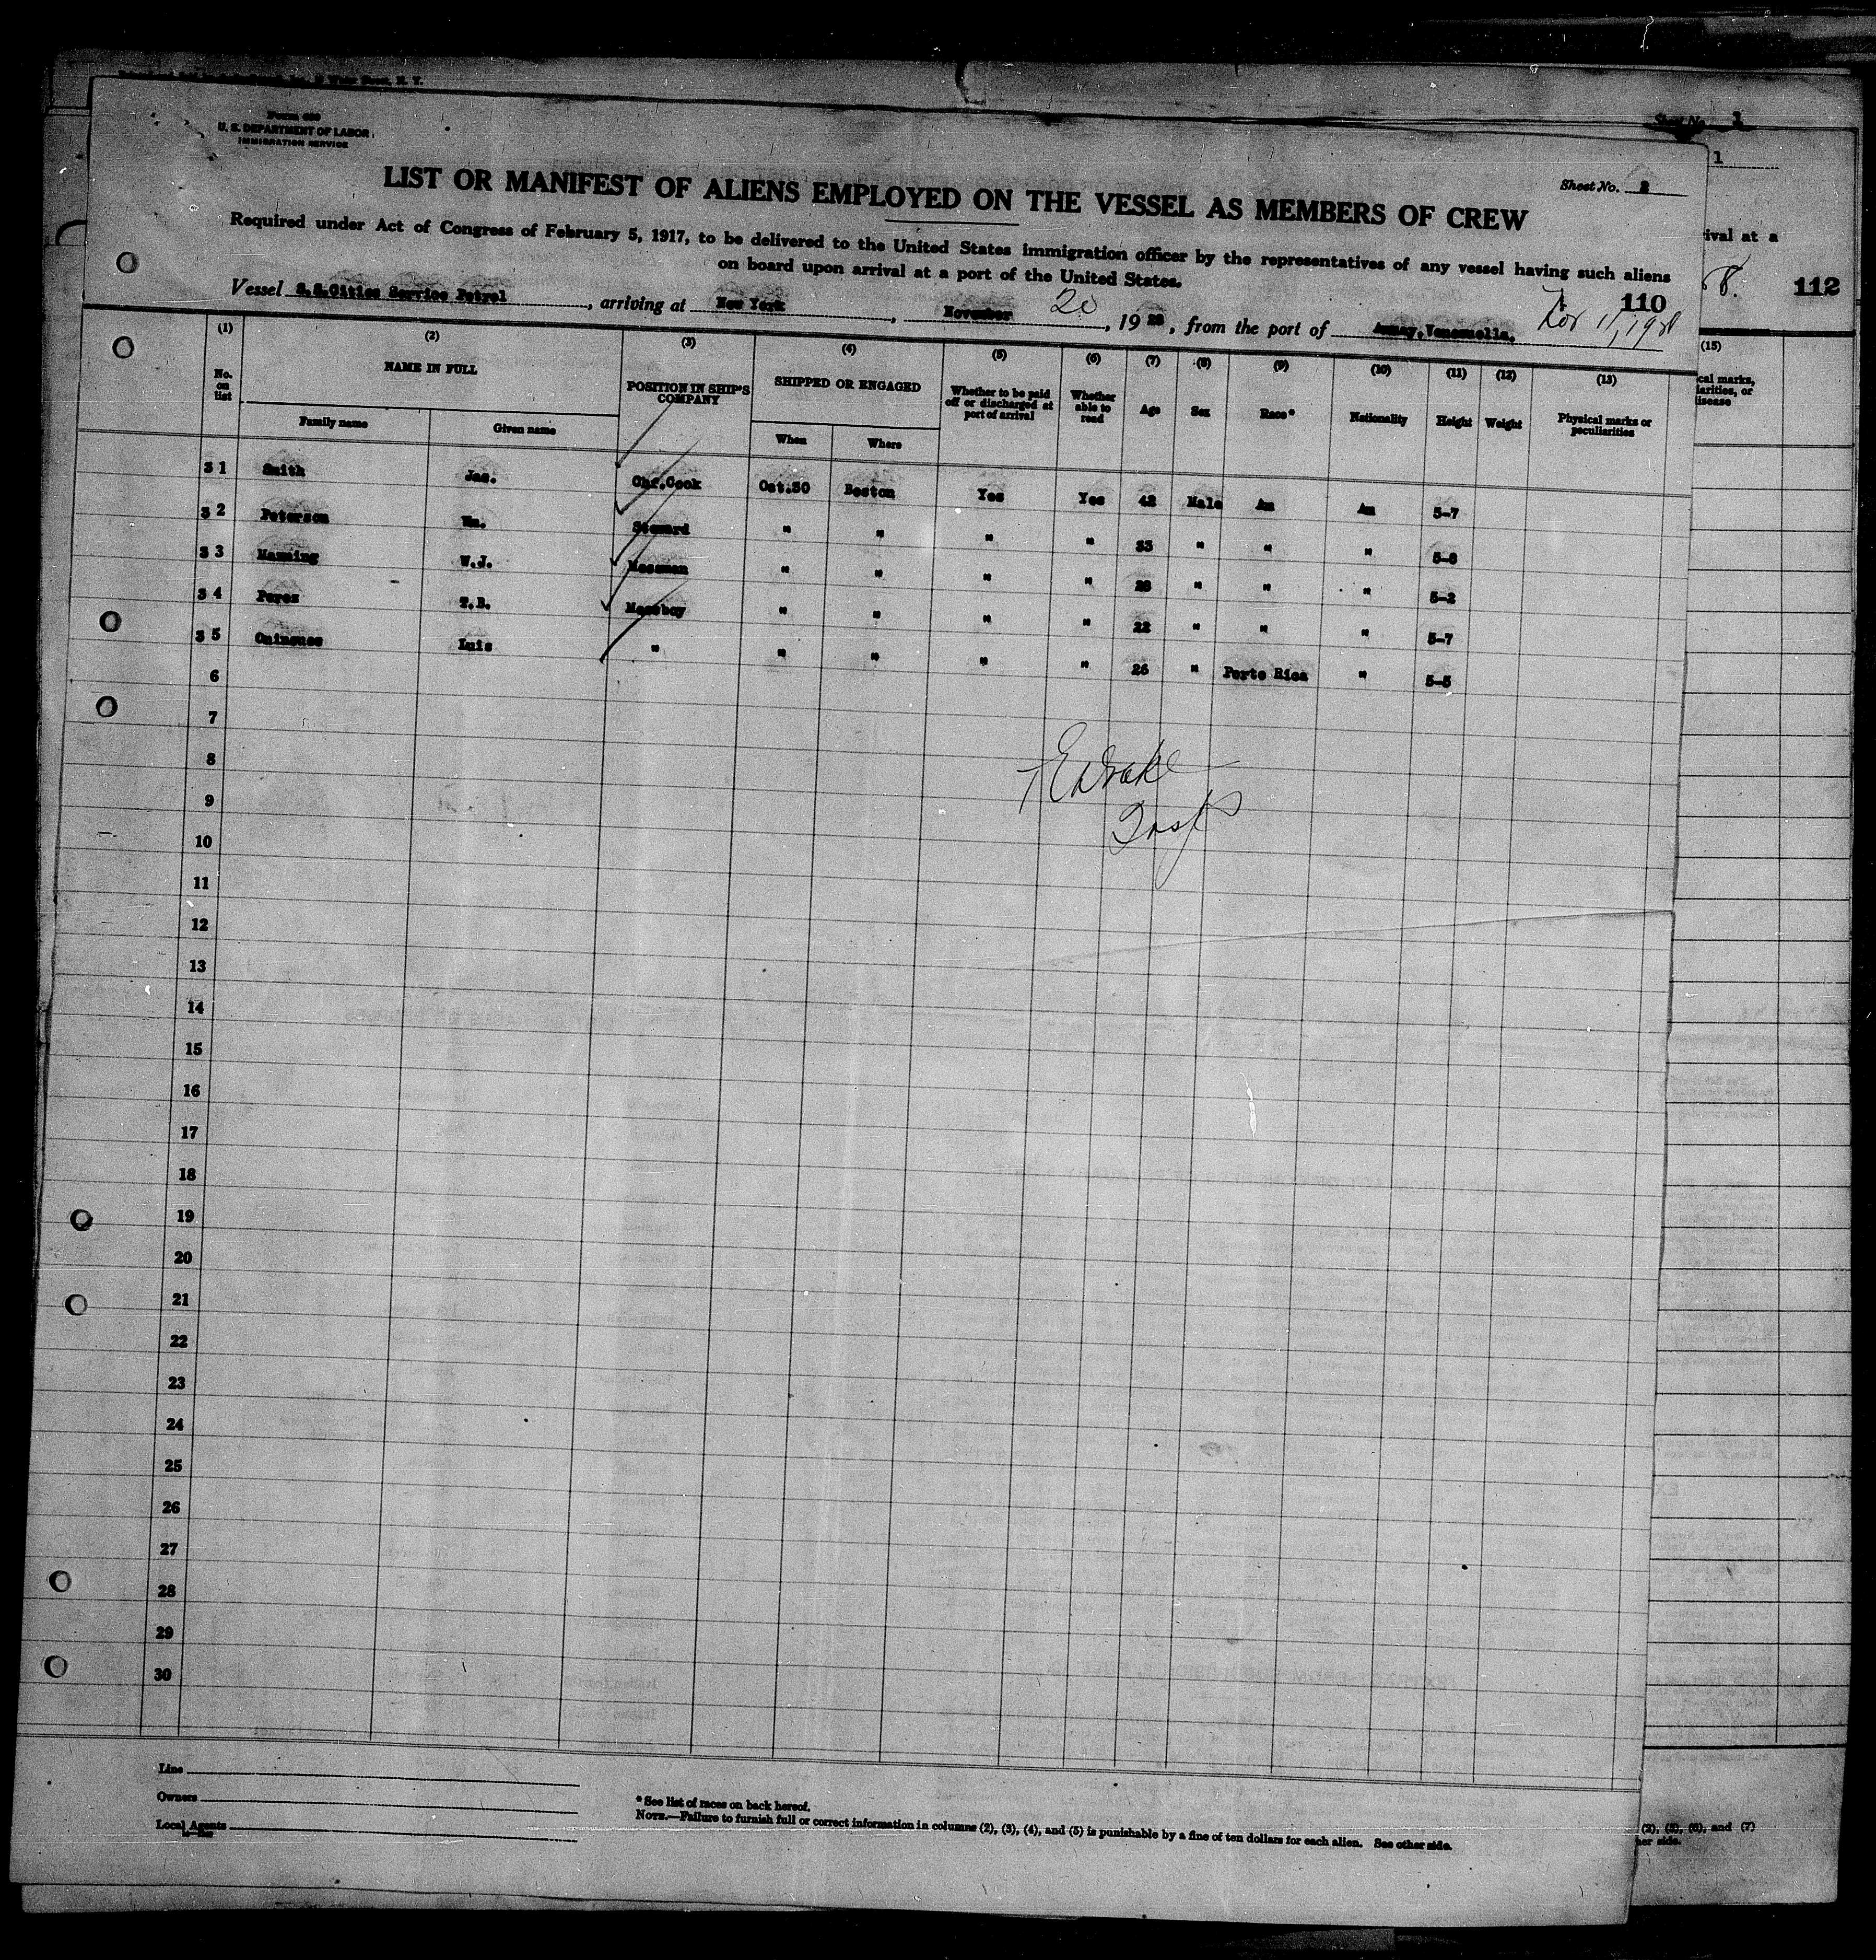 Form 680
U. S. DEPARTMENT OF LABOR
IMMIGRATION SERVICE
Sheet No. 1
1
Sheet No. 2
LIST OR MANIFEST OF ALIENS EMPLOYED ON THE VESSEL AS MEMBERS OF CREW
Required under Act of Congress of February 5, 1917, to be delivered to the United States immigration officer by the representatives of any vessel having such aliens
on board upon arrival at a port of the United States.
rival at a
8. 112
110
Vessel S.S.Cities Service Petrol, arriving at New York, November 20, 1928, from the port of Venezuella. Nov 11, 1928
(1) (2) (3) (4) (5) (6) (7) (8) (9) (10) (11) (12) (13) (15)
No. on list NAME IN FULL POSITION IN SHIP'S COMPANY SHIPPED OR ENGAGED Whether to be paid off or discharged at port of arrival Whether able to read Age Sex Race* Nationality Height Weight Physical marks or peculiarities
cal marks,
iarities, or
isease
Family name Given name When Where
3 1 Smith Jas. Chf.Cook Oct.30 Boston Yes Yes 42 Male Am Am 5-7
3 2 Peterson Wm. Steward " " " " 33 " " " 5-8
3 3 Manning W.J. Messman " " " " 28 " " " 5-2
3 4 Perez T.B. Messboy " " " " 22 " " " 5-7
3 5 Luis " " " " " 26 " Porto Rica " 5-5
6
7
8
9
10
11
12
13
14
15
16
17
18
19
20
21
22
23
24
25
26
27
28
29
30
Drake
Insp
Line
Owners
Local Agents
* See list of races on back hereof.
NOTE.—Failure to furnish full or correct information in columns (2), (3), (4), and (5) is punishable by a fine of ten dollars for each alien. See other side.
(2), (5), (6), and (7)
her side.